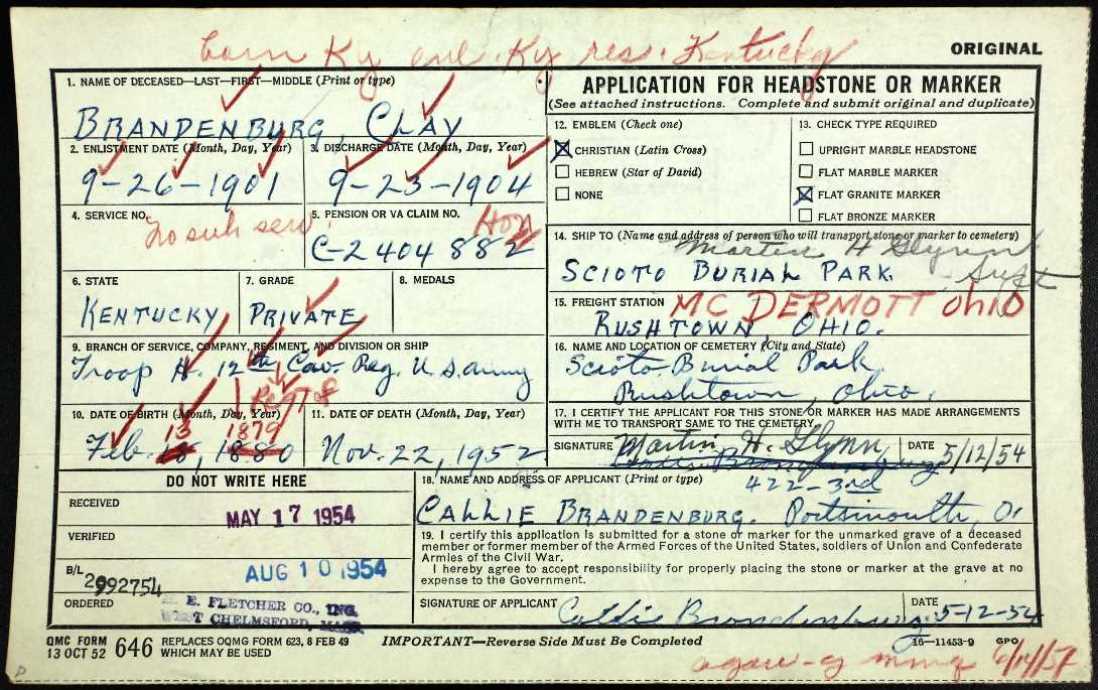 born Ky enl. Ky res. Kentucky
ORIGINAL
1. NAME OF DECEASED—LAST—FIRST—MIDDLE (Print or type)
BRANDENBURG, CLAY
2. ENLISTMENT DATE (Month, Day, Year)
3. DISCHARGE DATE (Month, Day, Year)
9-26-1901
9-23-1904
4. SERVICE NO.
No such serv.
5. PENSION OR VA CLAIM NO.
Hon
C-2404 882
6. STATE
KENTUCKY
7. GRADE
PRIVATE
8. MEDALS
9. BRANCH OF SERVICE, COMPANY, REGIMENT, AND DIVISION OR SHIP
Troop H. 12th Cav. Reg. U.S. Army
10. DATE OF BIRTH (Month, Day, Year)
13 1879
Feb. 18, 1880
11. DATE OF DEATH (Month, Day, Year)
Nov. 22, 1952
APPLICATION FOR HEADSTONE OR MARKER
(See attached instructions. Complete and submit original and duplicate)
12. EMBLEM (Check one)
CHRISTIAN (Latin Cross)
HEBREW (Star of David)
NONE
13. CHECK TYPE REQUIRED
UPRIGHT MARBLE HEADSTONE
FLAT MARBLE MARKER
FLAT GRANITE MARKER
FLAT BRONZE MARKER
14. SHIP TO (Name and address of person who will transport stone or marker to cemetery)
Martin H Glynn
Supt
SCIOTO BURIAL PARK.
15. FREIGHT STATION
MC DERMOTT Ohio
RUSHTOWN, OHIO.
16. NAME AND LOCATION OF CEMETERY (City and State)
Scioto Burial Park
Rushtown, Ohio.
17. I CERTIFY THE APPLICANT FOR THIS STONE OR MARKER HAS MADE ARRANGEMENTS
WITH ME TO TRANSPORT SAME TO THE CEMETERY.
SIGNATURE Martin H. Glynn
DATE 5/12/54
DO NOT WRITE HERE
RECEIVED
MAY 17 1954
VERIFIED
B/L
2992754
AUG 10 1954
ORDERED
E. FLETCHER CO., INC.
WEST CHELMSFORD, MASS.
18. NAME AND ADDRESS OF APPLICANT (Print or type)
422-3rd
CALLIE BRANDENBURG. Portsmouth, O.
19. I certify this application is submitted for a stone or marker for the unmarked grave of a deceased
member or former member of the Armed Forces of the United States, soldiers of Union and Confederate
Armies of the Civil War.
I hereby agree to accept responsibility for properly placing the stone or marker at the grave at no
expense to the Government.
SIGNATURE OF APPLICANT Callie Brandenburg
DATE 5-12-54
QMC FORM
13 OCT 52 646
REPLACES OQMG FORM 623, 8 FEB 49
WHICH MAY BE USED
IMPORTANT—Reverse Side Must Be Completed
16—11453-9 GPO